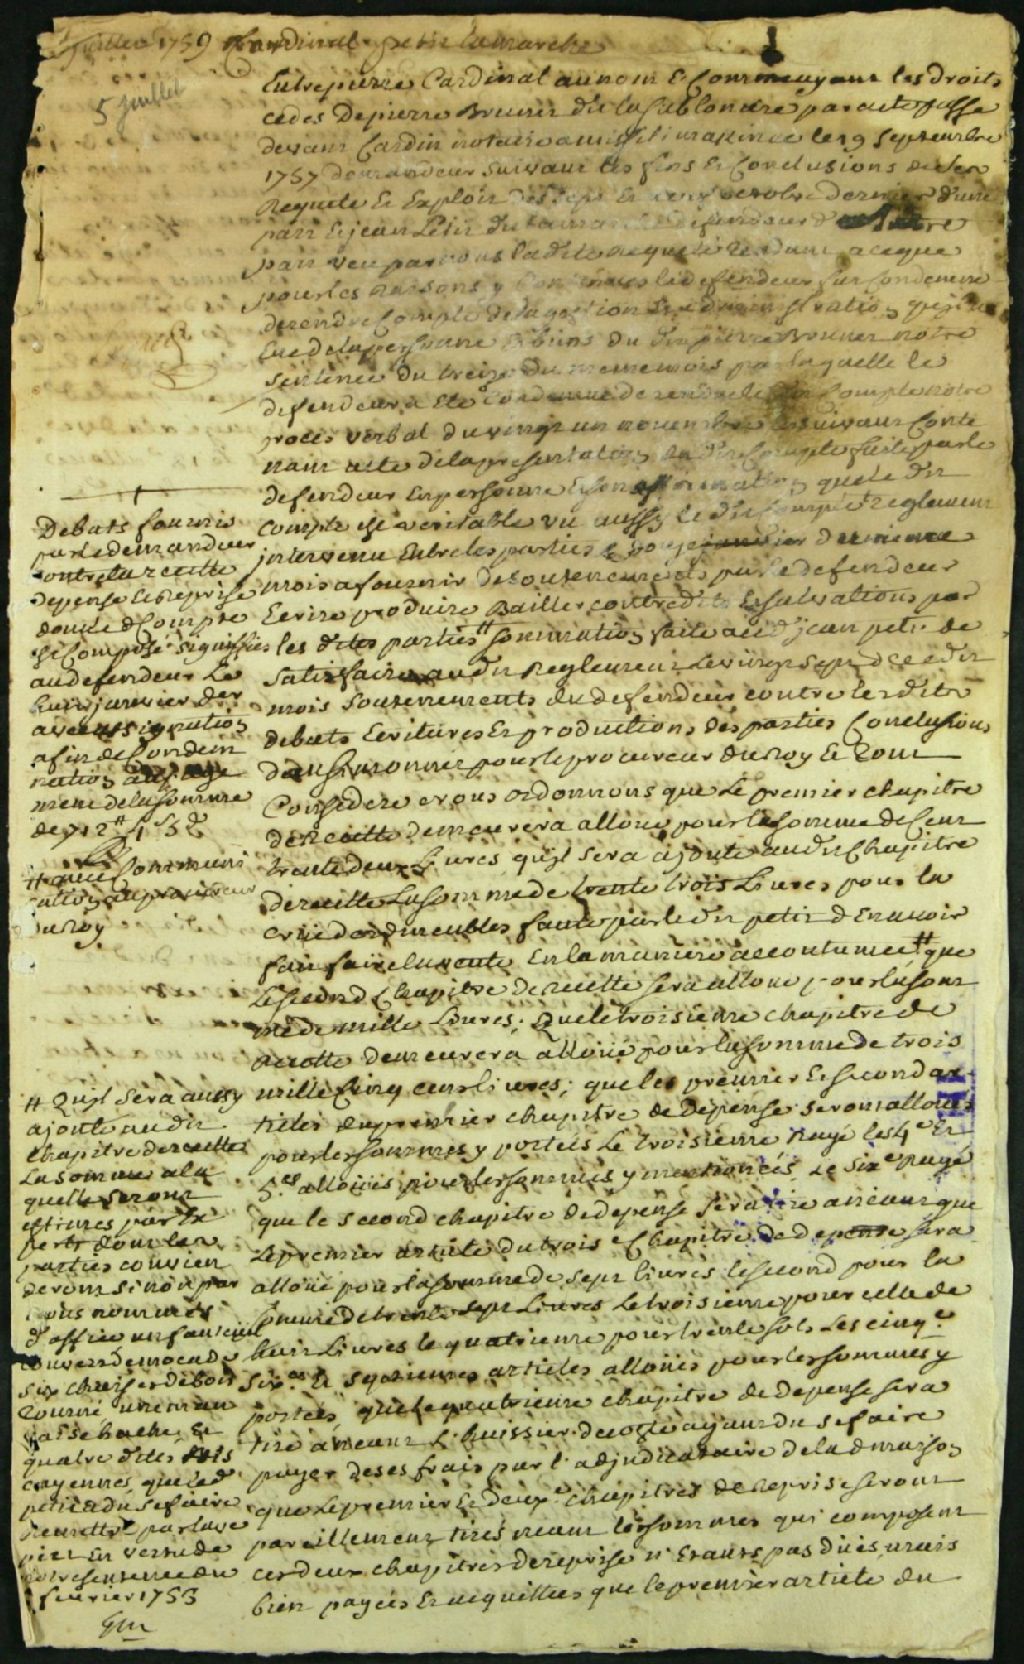 Juillet 1759 Cardinal petit Lamarche
5 Juillet
Entre pierre Cardinal au nom & Comme ayant les droits
cedes De pierre Bruner dit la Sablonere par acte passe
devant Cardin notaire a le 19 Septembre
1757 demandeur Suivant les fins Et Conclusions de Ses
Requete Et Exploit des Sept Et octobre dernier d'une
part Et jean petit dit Lamarche defendeur d'autre
part veu par nous la dite Requete tendant a ceque
pour les Raisons y Contenues le defendeur fut Condemne
de rendre Compte de la gestion Et administration quil a
Eue de la personne Et biens du dit pierre Brunet notre
Sentence du treize du meme mois par laquelle le
defendeur a Ete Condemne de rendre le dit Compte notre
proces verbal du vingt un novembre Ensuivant Conte
nant acte de la presentation du dit Compte faite par le
defendeur En personne Et son affirmation que le dit
Compte est veritable vu aussy le dit Compte Reglement
intervenu Entre les parties le douze janvier dernier
mois a fournir de Soutenements par le defendeur
Ecrire produire Bailler contredits Et Salvations par
les dites parties # Sommation faite au d. jean petit de
Satisfaire au dit Reglement Le vingt Sept
mois Soutenements du defendeur contre les dits
debats Ecritures Et productions des parties Conclusions
de pour le procureur du Roy Et Tout
Considere nous ordonnons que Le premier chapitre
de Recette demeurera alloue pour la somme de Cent
trente deux Livres qu'il sera ajoute au dit Chapitre
de recette La somme de trente trois Livres pour la
crue des meubles faute par le dit petit d En avoir
fait faire la vente En la maniere accoutumee # que
Le second Chapitre de recette sera alloue pour la som
me de mille Livres; Que le troisieme chapitre de
Recette demeurera alloue pour la somme de trois
mille Cinq cent livres; que les premier Et second ar
ticles du premier chapitre de Depense seront alloues
pour les sommes y portees Le troisieme Rayé les 4e Et
5es alloues pour les sommes y mentionees, Le Sixe Rayé
que le second chapitre de depense sera tire a neant que
Le premier article du troise Chapitre de depense sera
alloue pour la somme de sept livres le second pour la
somme de trente sept Livres Le troisieme pour celle de
huit Livres le quatrieme pour trente sols Les cinqe
Sixes Et Septiemes articles alloues pour les sommes y
portees que le quatrieme chapitre de depense sera
tire a neant L huissier Decoste ayant du se faire
payer de ses frais par l'adjudicataire de la d. maison
que Le premier Et deuxe chapitres de Reprise seront
pareillement tires neant les sommes qui composent
ces deux chapitres de reprise n'Etants pas dues mais
bien payees Et acquittees que le premier article du
Debats fournis
par le demandeur
contre la recette
depense Et Reprise
dont le d Compte
Est Composé signifies
au defendeur Le
huit janvier der
avec assignation
afin de Condem
nation au paye
ment de la somme
de 712# 4s 3d
# avec Communi
cation au procureur
du Roy
# Qu'il sera aussy
ajoute au dit
Chapitre de recettes
La somme a la
quelle seront
estimes par Ex
perts dont les
parties convien
deront si non par
nous nommes
d'office un fauteuil
six chaises de bois
Tourné une man
hache Et
quatre
que led
petit a du se faire
Remettre par
En vertu de
notre sentence du
fevrier 1753